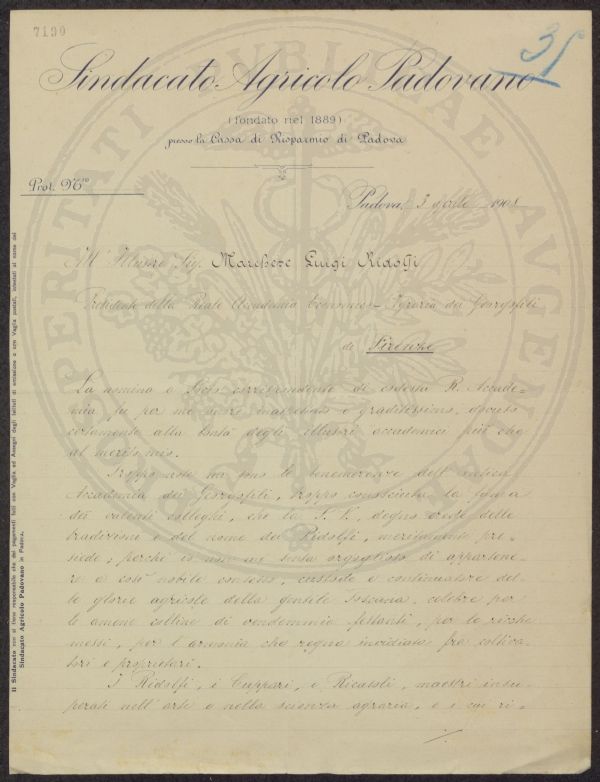 7190
35
Sindacato Agricolo Padovano
(fondato nel 1889)
presso la Cassa di Risparmio di Padova
Prot. N.ro
Padova, 3 1901
Marchese Luigi Ridolfi
Presidente della Reale Accademia Economico-Agraria dei Georgofili
di Firenze
La nomina a Socio corrispondente di codesta R. Accade-
mia fu per me onore inatteso e graditissimo, dovuto
certamente alla bontà degli illustri accademici più che
al merito mio.
Troppo note mi sono le benemerenze dell'antica
Accademia dei Georgofili, troppo conosciuta la fama
dei valenti colleghi, che la S. V., degno erede delle
tradizioni e del nome dei Ridolfi, meritamente pre-
siede; perchè io non mi senta orgoglioso di appartene-
re a così nobile consesso, custode e continuatore del-
le glorie agricole della gentile Toscana, celebre per
le amene colline di vendemmia festanti, per le ricche
messi, per l'armonia che regna invidiata fra coltiva-
tori e proprietari.
I Ridolfi, i Cuppari, i Ricasoli, maestri insu-
perati nell'arte e nella scienza agraria, e i cui ri-
Il Sindacato non si tiene responsabile che dei pagamenti fatti con Vaglia od Assegni degli Istituti di emissione o con Vaglia postali, intestati al nome del
Sindacato Agricolo Padovano in Padova.
PROSPERITATI PUBLICAE AUGENDAE